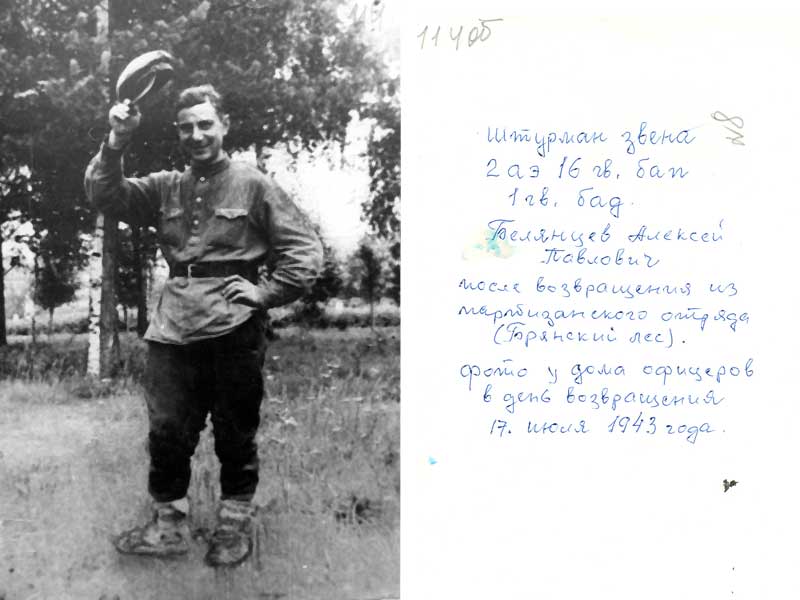 11406
Штурман звена
2 аэ 16 гв. бап
1 гв. бад.
Белянцев Алексей
Павлович
после возвращения из
партизанского отряда
(Брянский лес).
фото у дома офицеров
в день возвращения
17. июля 1943 года.